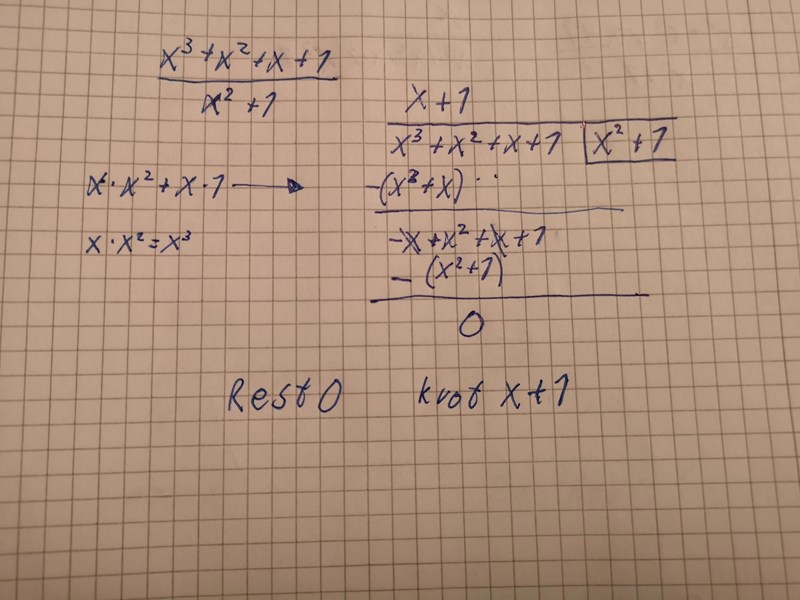 x³+x²+x+1
x²+1
x+1
x³+x²+x+1 x²+1
x·x²+x·1 → -(x³+x)··
x·x²=x³ -x+x²+x+1
-(x²+1)
0
Rest 0 kvot x+1